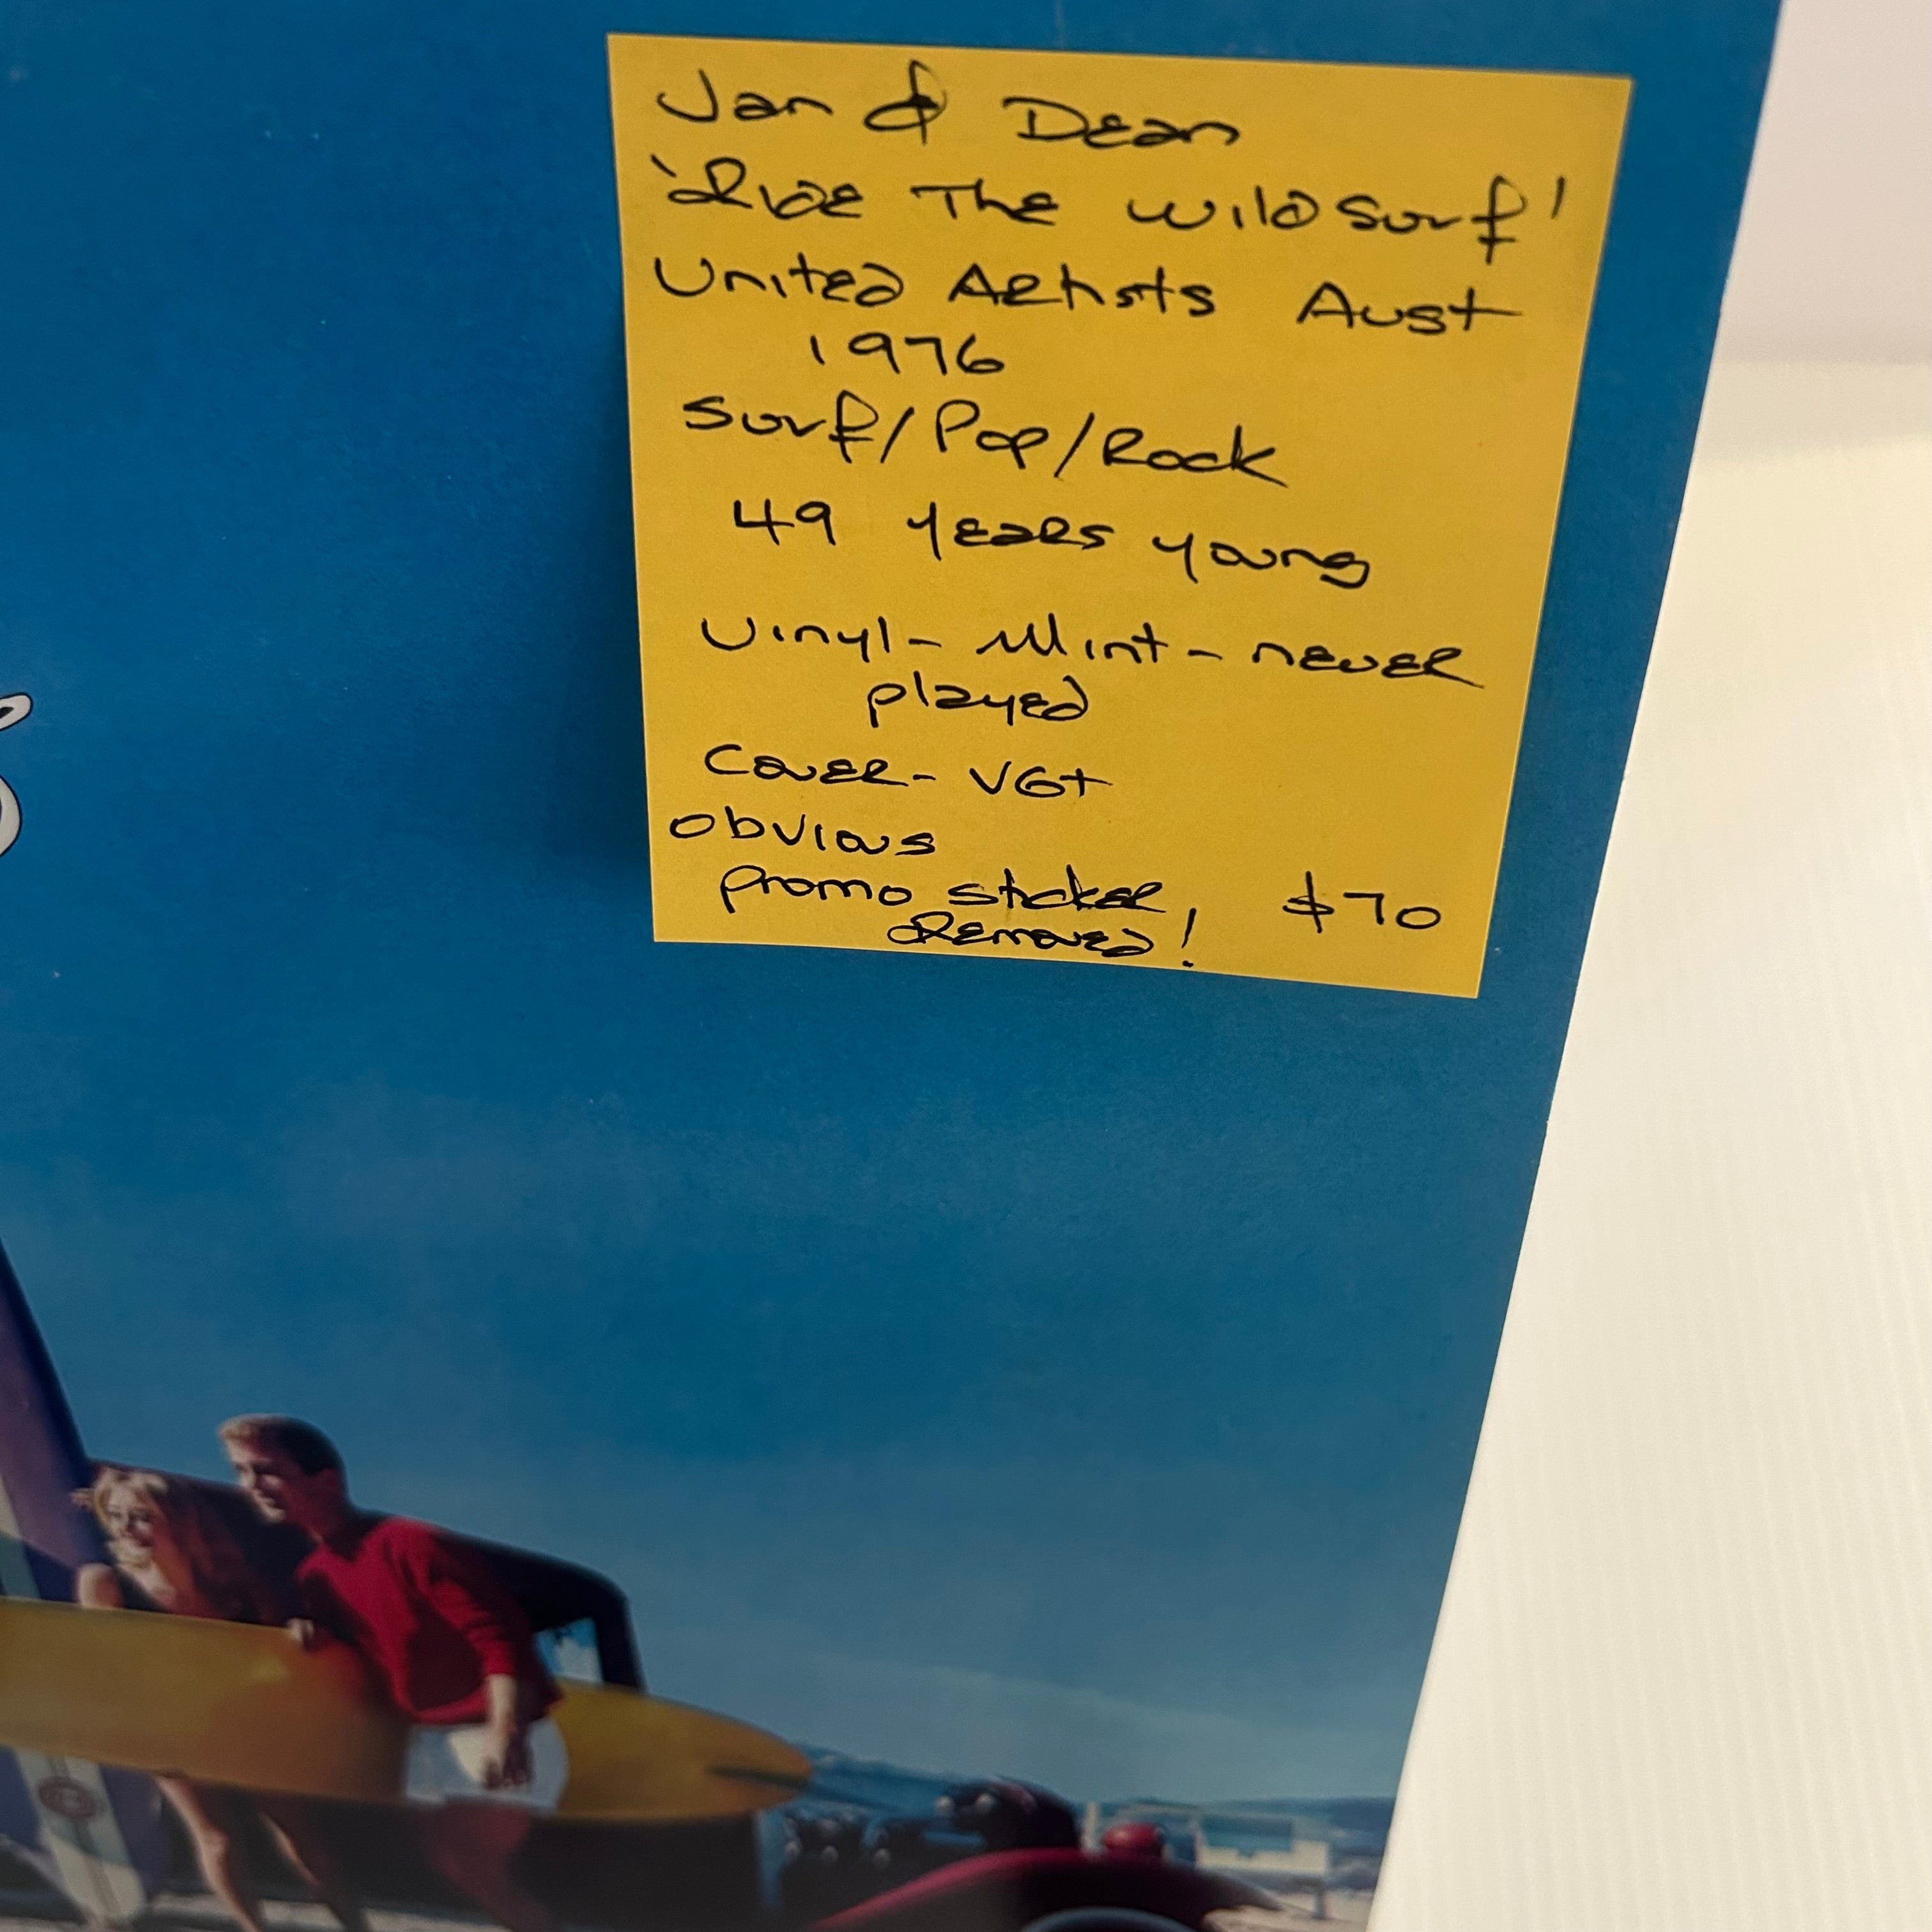 Jan & Dean
'Ride The Wild Surf'
United Artists Aust
1976
Surf/Pop/Rock
49 years young
Vinyl- Mint- never
played
Cover- VG+
Obvious
promo sticker
removed!
$70